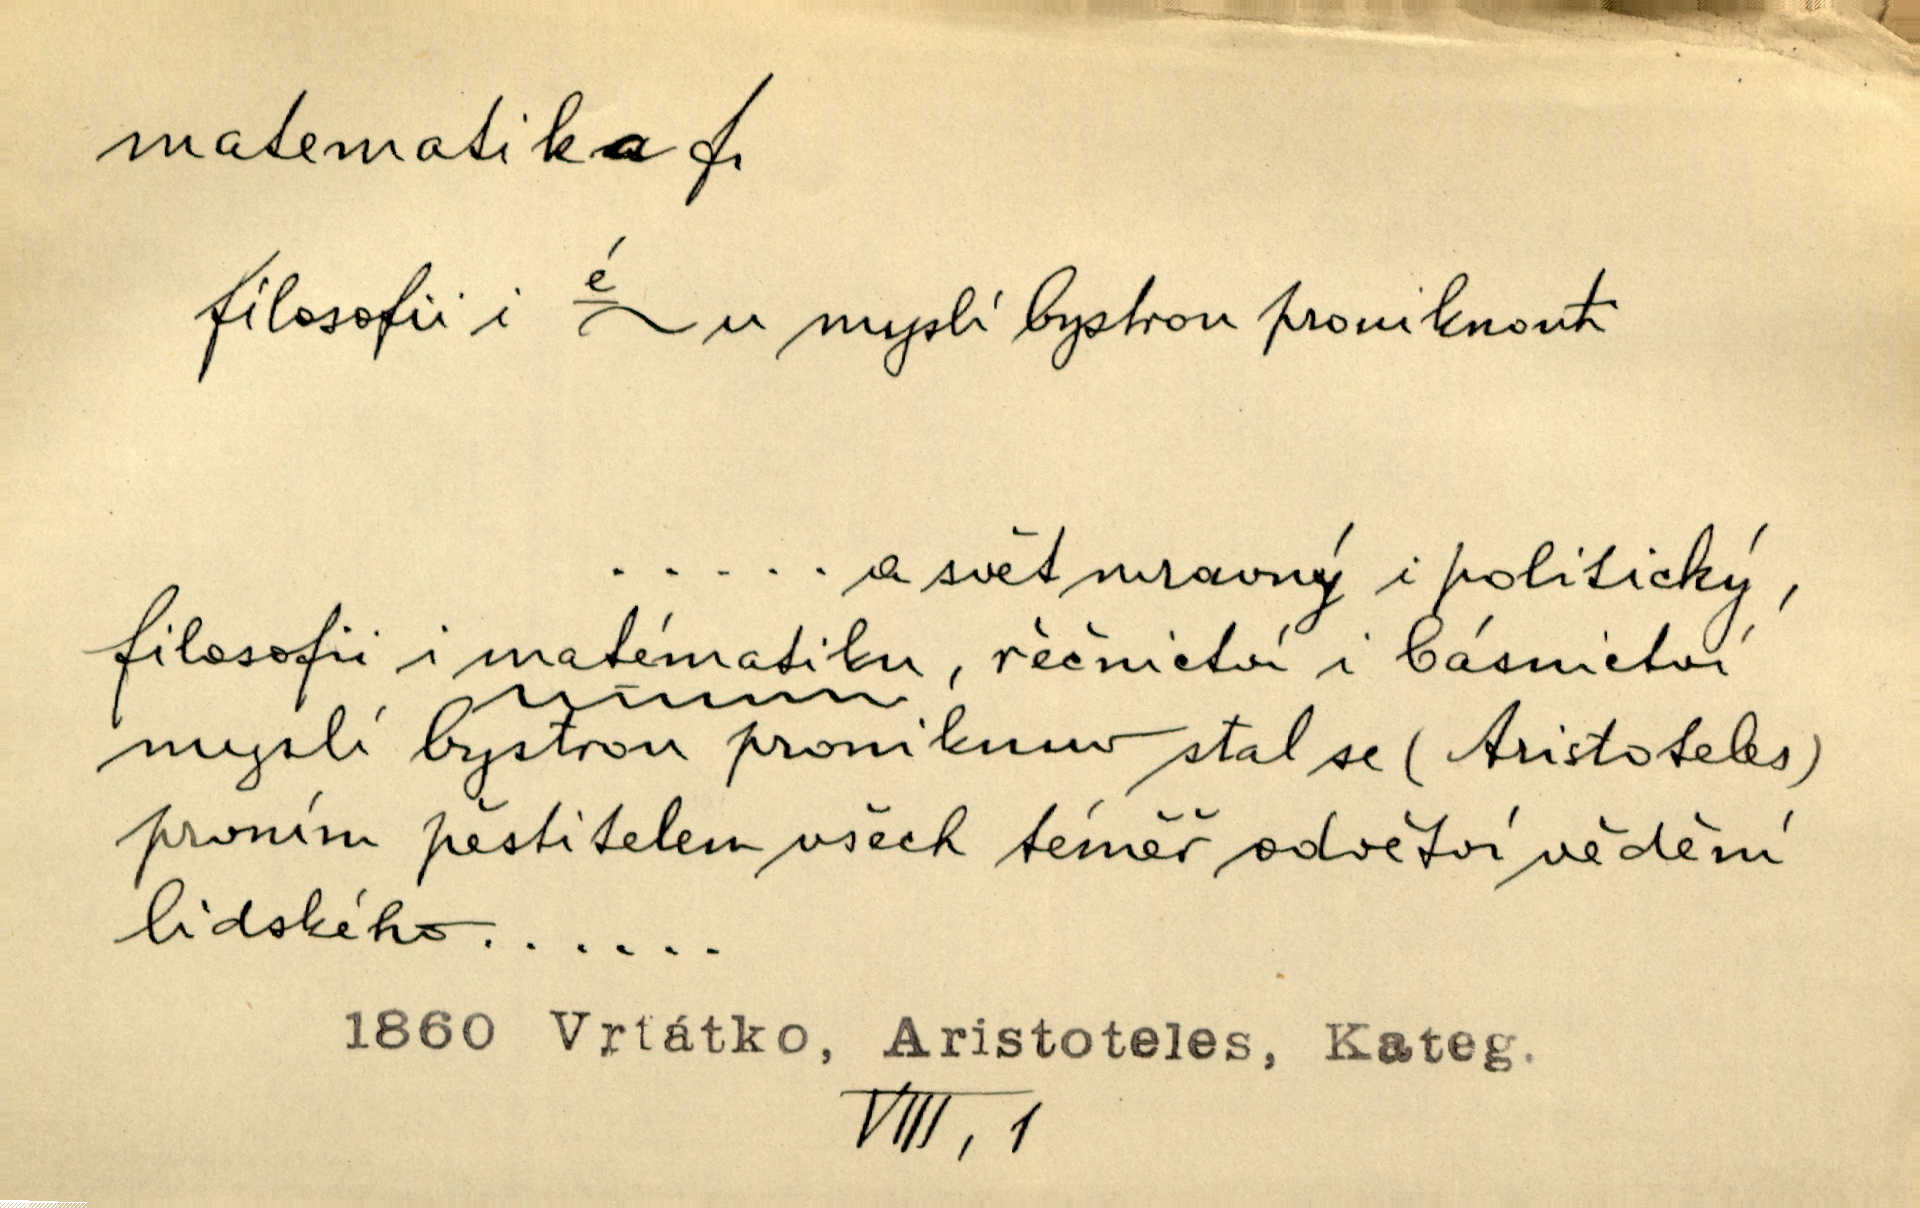 matematika f.
filosofii i é~u myslí bystrou proniknouti
. . . . . a svět mravný i politický,
filosofii i matématiku, řečnictví i básnictví
myslí bystrou proniknuv stal se (Aristoteles)
prvním pěstitelem všech téměř odvětví vědění
lidského. . . . . .
1860 Vrťátko, Aristoteles, Kateg.
VIII, 1